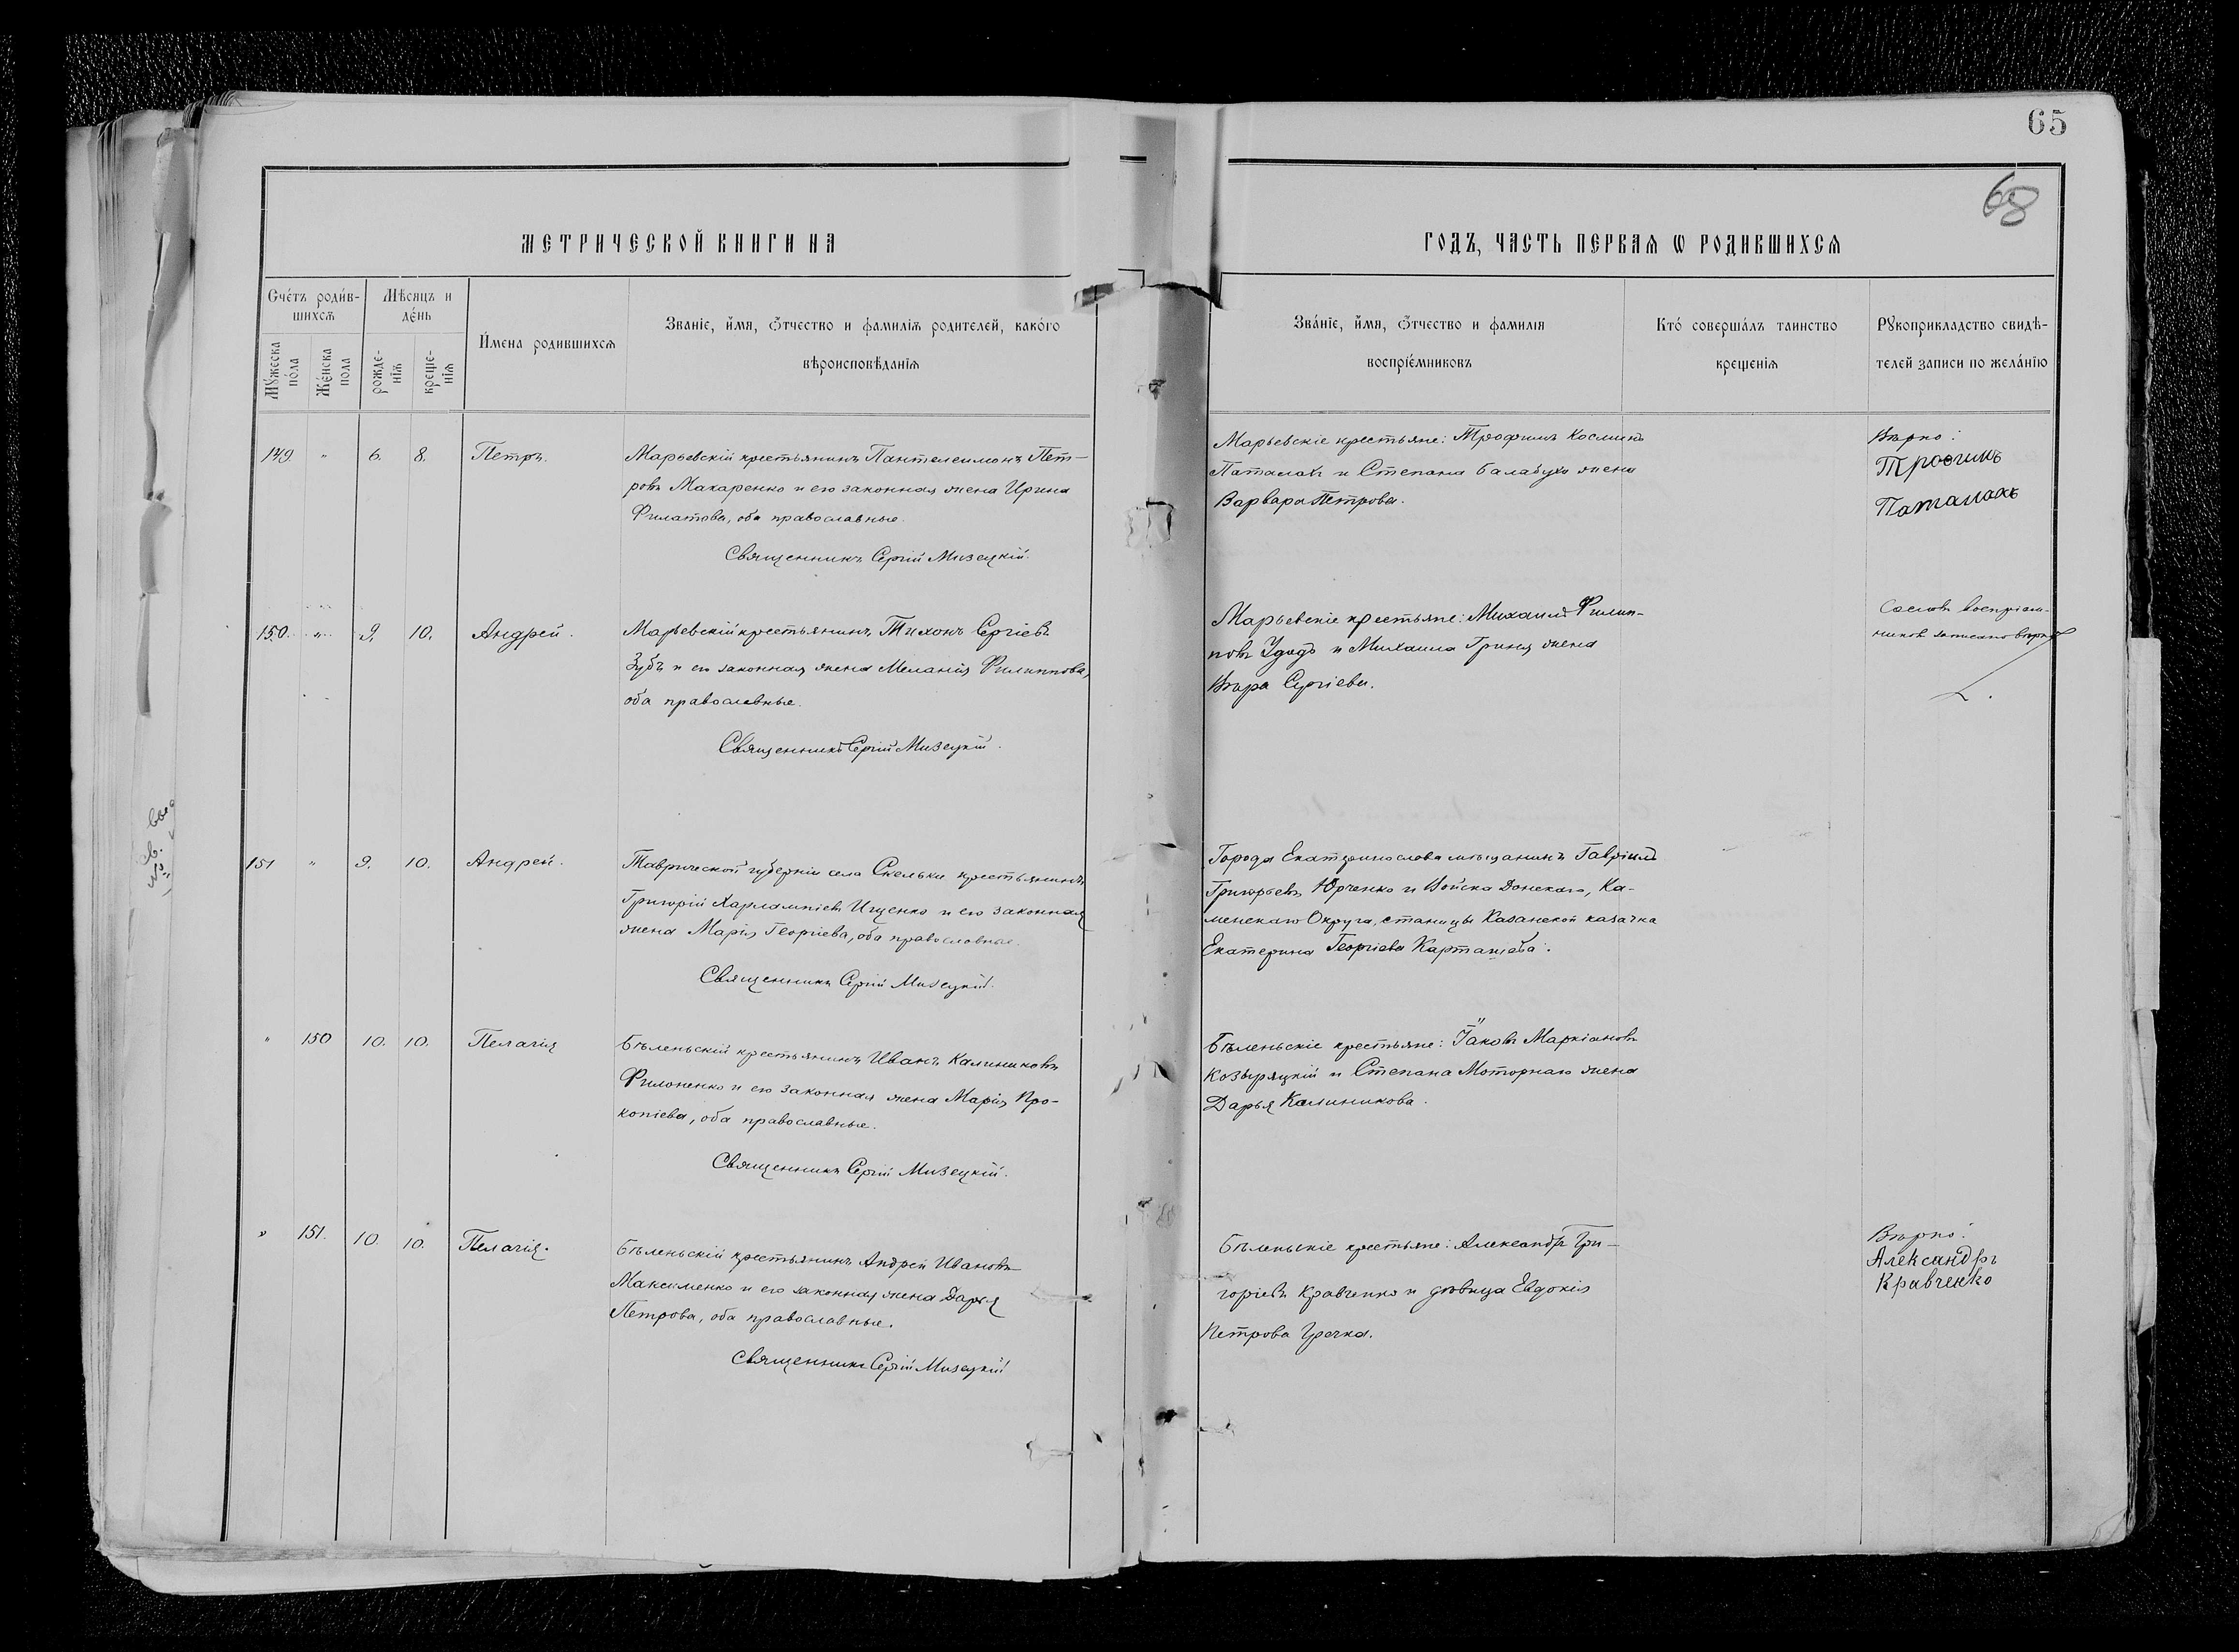 65
68
МЕТРИЧЕСКОЙ КНИГИ НА
ГОДЪ, ЧАСТЬ ПЕРВАѦ Ѡ РОДИВШИХСѦ
Счéтъ роди́в-
шихсѧ
Мѣсяцъ и
де́нь
Мꙋ́жеска
по́ла
Же́нска
пола
рожде-
ніѧ
креще-
ніѧ
И҆мена родившихсѧ
Званіе, и҆́мя, ѻ҆́тчество и фамиліѧ родителей, како́го
вѣроисповѣ́даніѧ
Зва́ніе, и҆́мя, ѻ҆́тчество и фамиліѧ
воспріе́мниковъ
Кто́ соверша́лъ таинство
крещеніѧ
Рꙋкоприкладство свидѣ-
телей записи по жела́нію
149. " 6. 8. Петръ.
Марьевскій крестьянинъ Пантелеимонъ Пет-
ровъ Макаренко и его законная жена Ирина
Филатова, оба православные.
Священникъ Сергій Мизецкій.
Марьевскіе крестьяне: Трофимъ Косминъ
Паталахъ и Степана Балабухо жена
Варвара Петрова.
Вѣрно:
Трофимъ
Паталахъ
150. " 9. 10. Андрей.
Марьевскій крестьянинъ Тихонъ Сергіевъ
Зубъ и его законная жена Меланія Филиппова,
оба православные.
Священникъ Сергій Мизецкій.
Марьевскіе крестьяне: Михаилъ Филип-
повъ Удодъ и Михаила Гриня жена
Вѣра Сергіева.
Со словъ воспріем-
никовъ записано вѣрно
151 " 9. 10. Андрей.
Таврической губерніи села Скельки крестьянинъ
Григорій Харлампіевъ Ищенко и его законная
жена Марія Георгіева, оба православные.
Священникъ Сергій Мизецкій.
Города Екатеринослава мѣщанинъ Гавріилъ
Григорьевъ Юрченко и Войска Донскаго, Ка-
менскаго Округа, станицы Казанской казачка
Екатерина Георгіева Карташева.
" 150 10. 10. Пелагія
Бѣленьскій крестьянинъ Иванъ Калиниковъ
Филоненко и его законная жена Марія Про-
копіева, оба православные.
Священникъ Сергій Мизецкій.
Бѣленьскіе крестьяне: Іаковъ Маркіановъ
Козыряцкій и Степана Моторнаго жена
Дарья Калиникова.
" 151. 10. 10. Пелагія.
Бѣленьскій крестьянинъ Андрей Ивановъ
Максименко и его законная жена Дарья
Петрова, оба православные.
Священникъ Сергій Мизецкій
Бѣленьскіе крестьяне: Александръ Гри-
горіевъ Кравченко и дѣвица Евдокія
Петрова Гречка.
Вѣрно:
Александръ
Кравченко